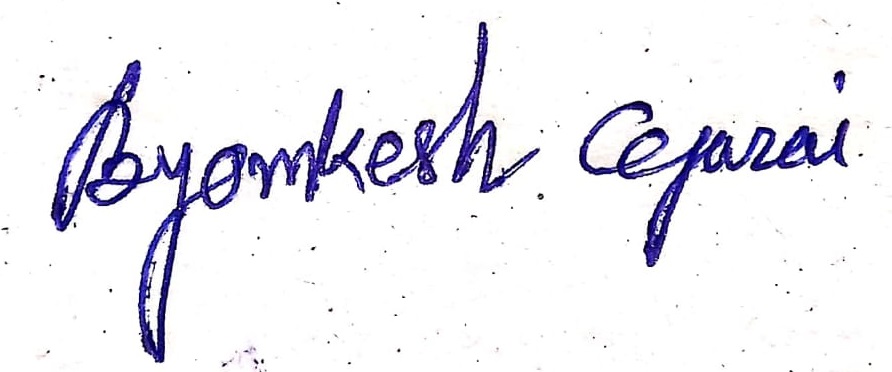 Byomkesh Garai